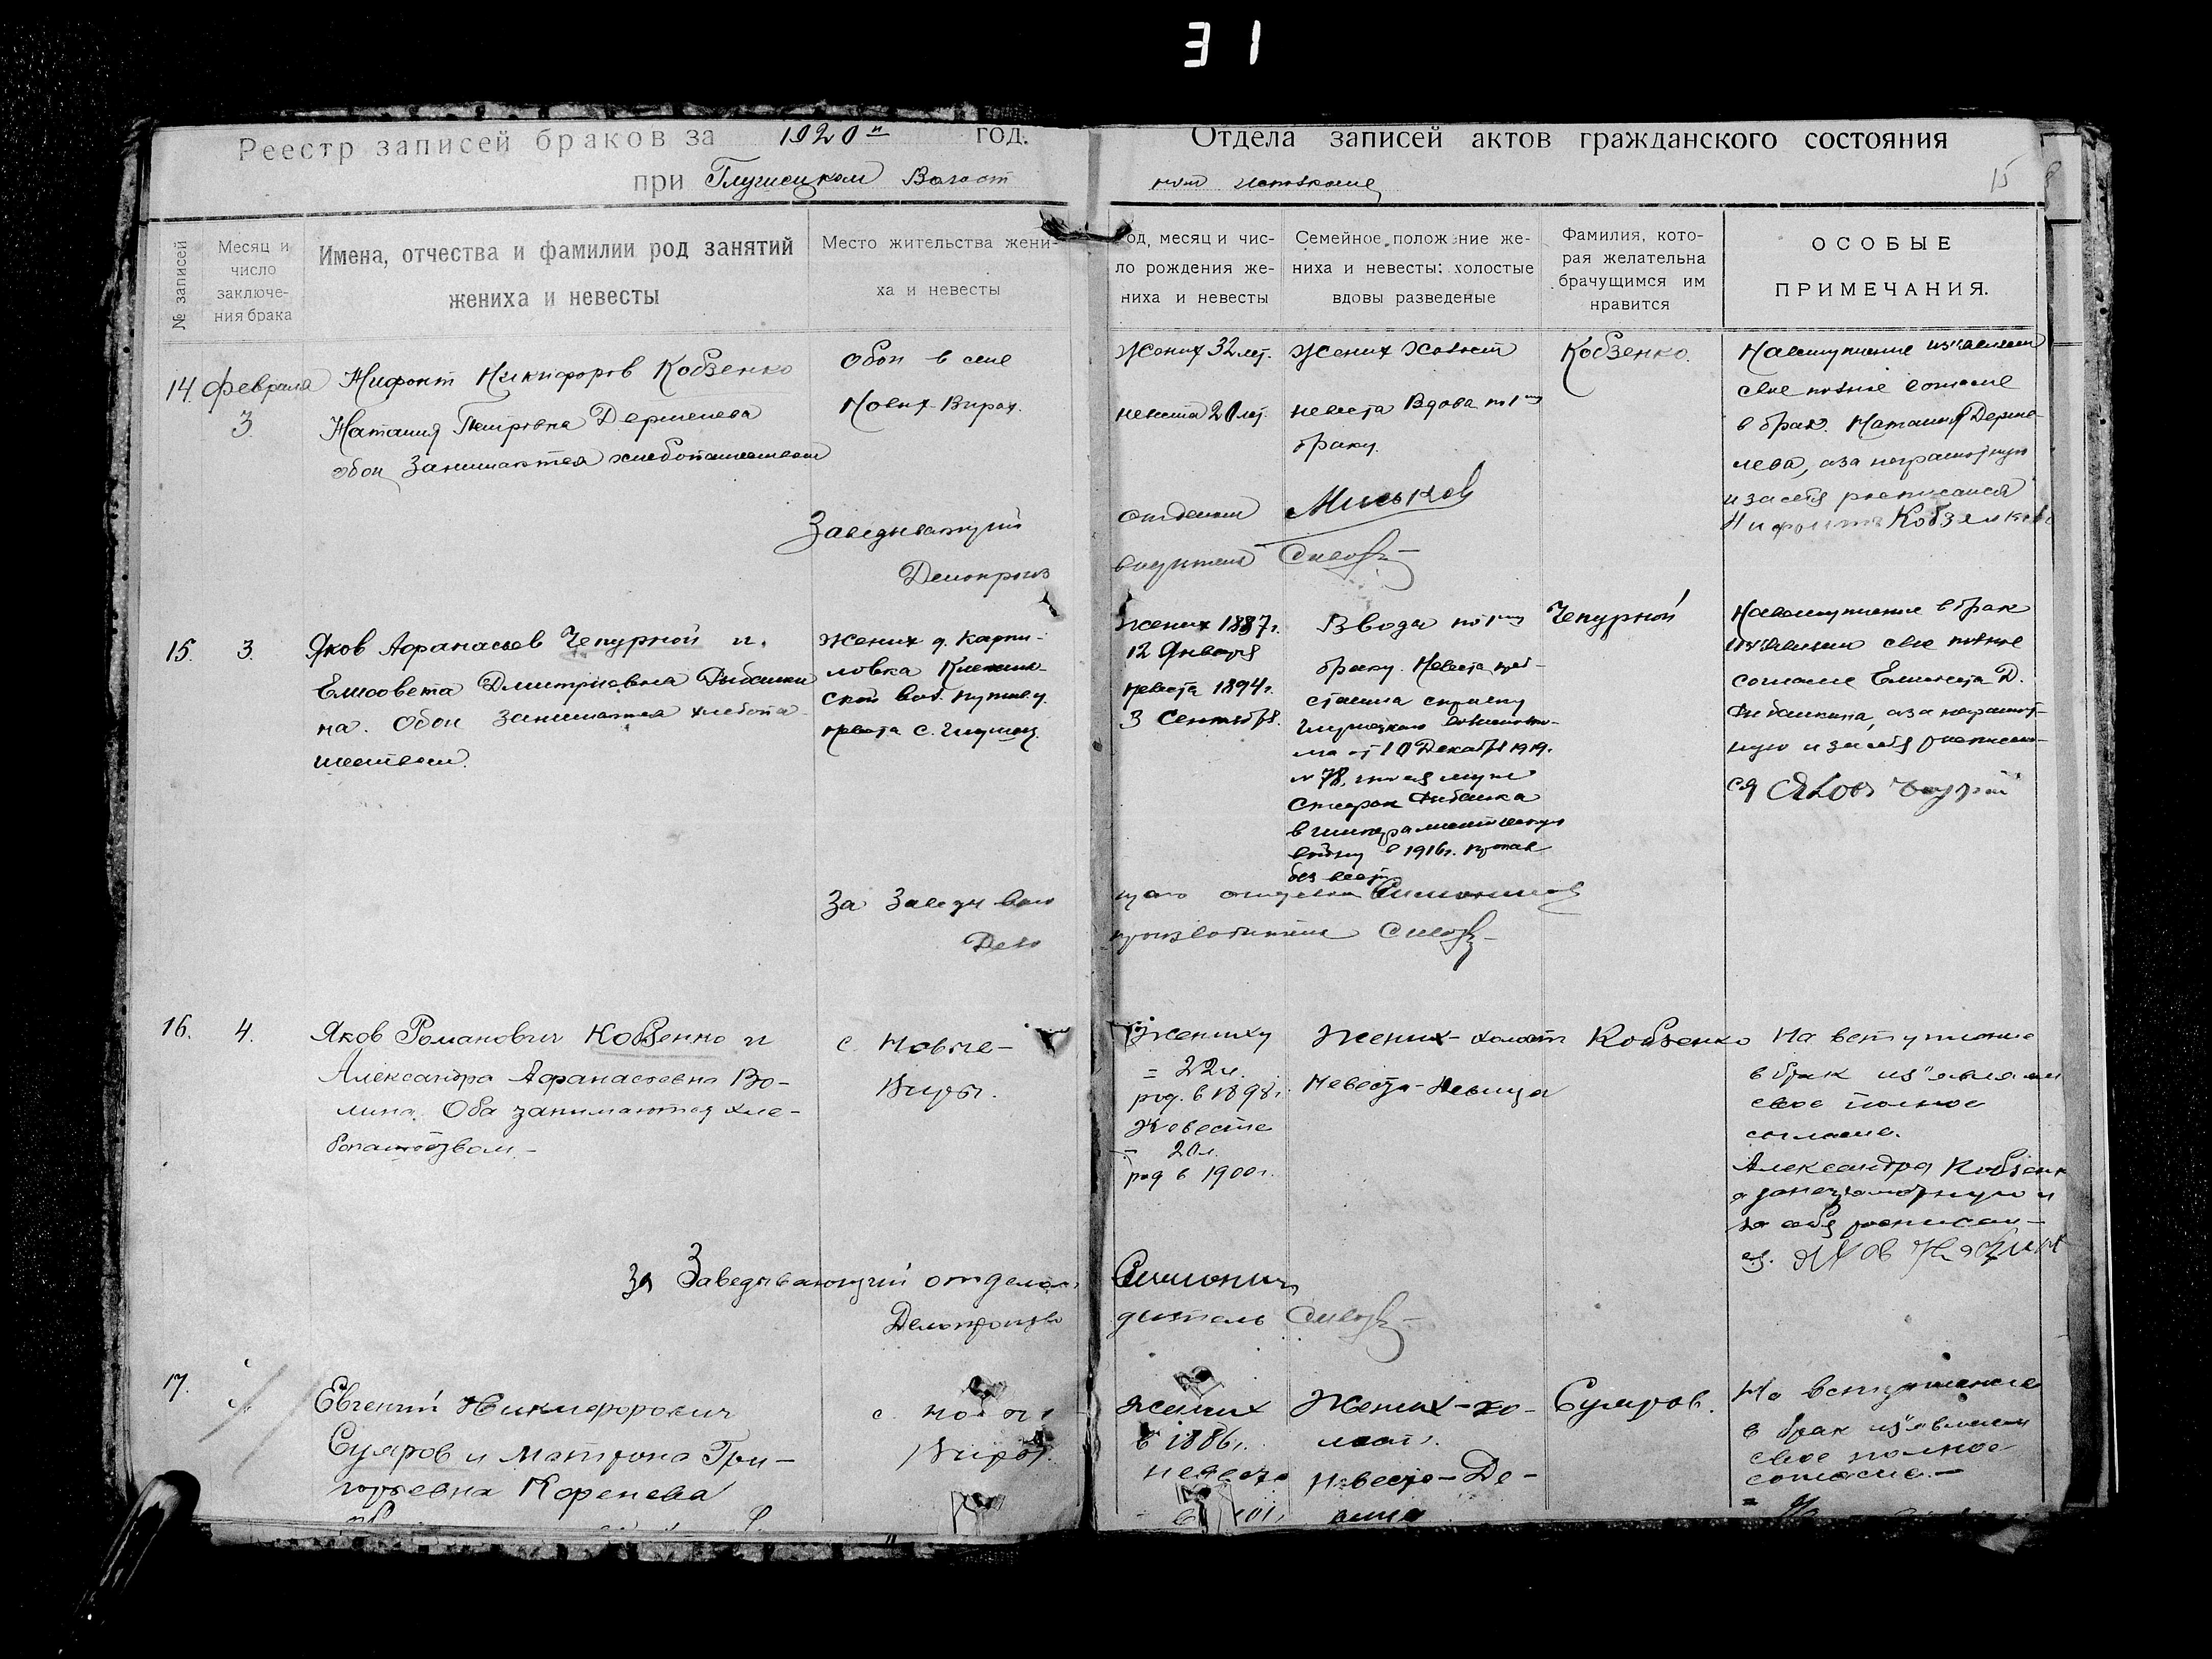 31
Реестр записей браков за 1920 год.
при Глушецком Волост
Отдела записей актов гражданского состояния
ном исполкоме
15
№ записей
Месяц и
число
заключе-
ния брака
Имена, отчества и фамилии род занятий
жениха и невесты
Место жительства жени-
ха и невесты
од, месяц и чис-
ло рождения же-
ниха и невесты
Семейное положение же-
ниха и невесты: холостые
вдовы разведеные
Фамилия, кото-
рая желательна
брачущимся им
нравится
ОСОБЫЕ
ПРИМЕЧАНИЯ.
14 февраля
3.
Нифонт Никифоров Кобзенко
Наталия Петровна Дермелева
обои Занимаются хлебопашеством
Обои в селе
Новых Вирах.
Жених 32 лет.
невеста 20 лет.
Жених Холост
невеста Вдова по 1му
браку.
Кобзенко.
На вступление из'явили
свое полное согласие
в брак. Наталия Дерме-
лева, а за неграмотную
и за себя росписался
Нифонт Кобзенко
Заведывающий
отделом
Миськов
Делопроиз
водитель
15. 3.
Яков Афанасьев Чепурной и
Елисовета Дмитриевна Рыбалки
на. Обои занимаются хлебопа
шеством.
Жених д. Карпи-
ловка
ской вол. Путивл у.
невеста с. Глушец.
Жених 1887 г.
12 Января
невеста 1894 г.
3 Сентября.
Вдова по 1му
браку. Невеста пред-
ставила справку
Глушецкого
ма от 10 Декабря 1919.
№ 78, что ея муж
Рыбалка
в империалистическую
войну в 1916 г. пропал
без вести
Чепурной
На вступление в брак
из'явили свое полное
согласие Елисовета Д.
Рыбалкина, а за неграмот-
ную и за себя росписал-
ся Яков Чепурной
За Заведываю
щего отделом
Дело
производитель
16. 4.
Яков Романович Кобзенко и
Александра Афанасьевна Во-
лина. Оба занимаются хле-
бопашеством.
с. Новые-
Виры.
Жениху
= 22 л.
род. в 1898 г.
Невесте
- 20 л.
род в 1900 г.
Жених - холост
Невеста - девица
Кобзенко
На вступление
в брак из'явили
свое полное
согласие.
Александра Кобзенк
а за неграмотную и
за себя росписал-
ся. Яков
За Заведывающий отделом
Делопроизво
дитель
17.
Евгений Никифорович
Суяров и Матрона Гри-
горьевна Коренева
с
Виры.
Жених
в 1886 г.
невеста
Жених - хо-
лост.
Невеста - Де-
вица
Суяров.
На вступление
в брак из'явили
свое полное
согласие.